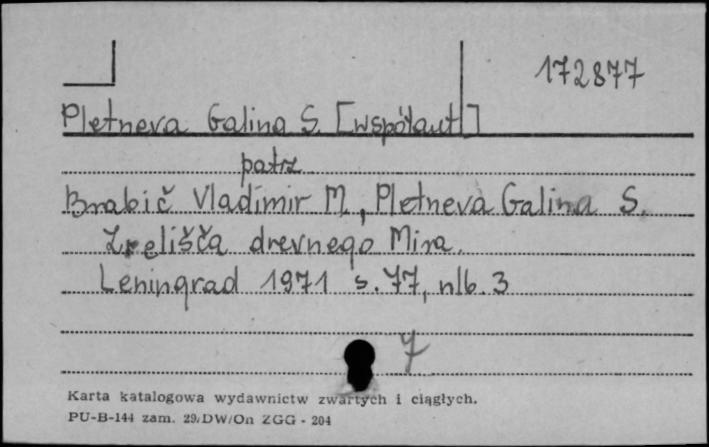 172877
Pletneva Galina S. [współaut]
patrz
Brabič Vladimir M., Pletneva Galina S.
Zrelišča drevnego Mira.
Leningrad 1971 s. 77, nlb. 3
7
Karta katalogowa wydawnictw zwartych i ciągłych.
PU-B-144 zam. 29/DW/On ZGG - 204